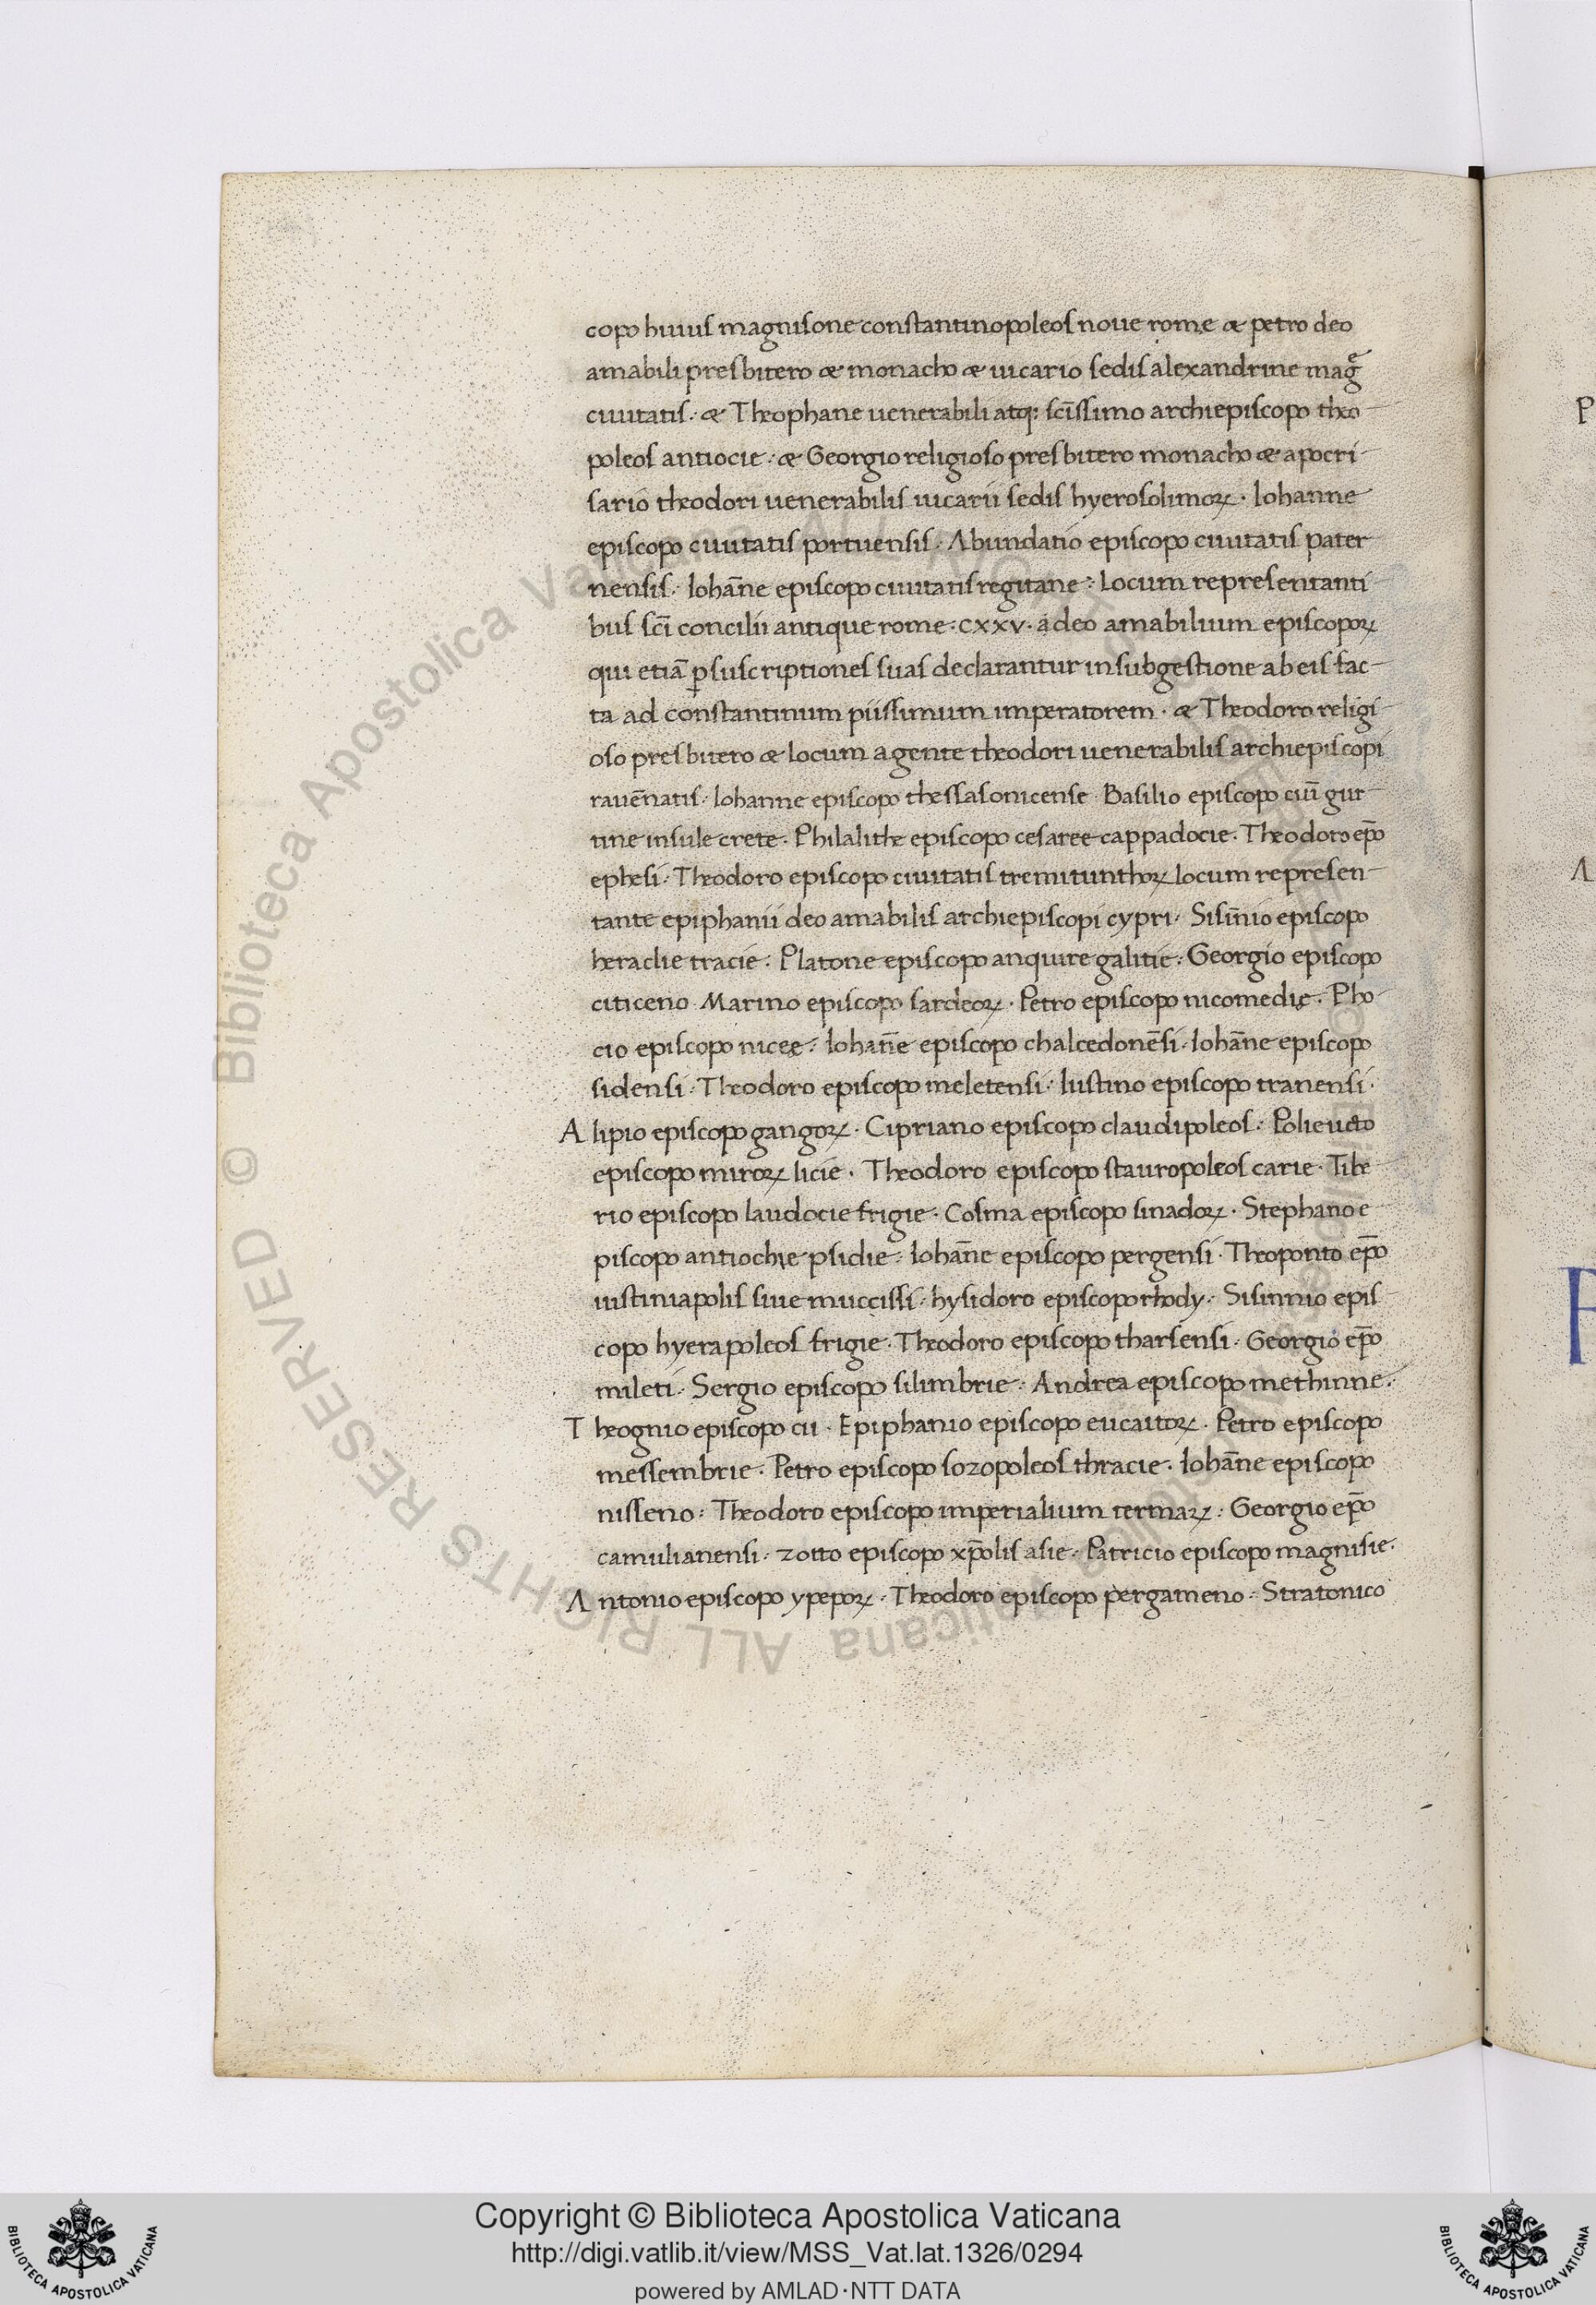 copo huius magnisone constantinopoleos noue rome & petro deo
amabili presbitero & monacho & uicario sedis alexandrine mag̃
ciuitatis. & Theophane uenerabili atq; scīssimo archiepiscopo theo
poleos antiocie. & Georgio religioso presbitero monacho & apocri
sario theodori uenerabilis uicarii sedis hyerosolimoꝝ. Iohanne
episcopo ciuitatis portuensis. Abundatio episcopo ciuitatis pater
nensis. Iohāne episcopo ciuitatis regitane. Locum representanti
bus scī concilii antique rome. cxxv. a deo amabilium episcopoꝝ
qui etiā ꝑ suscriptiones suas declarantur in subgestione ab eis fac
ta ad constantinum piissimum imperatorem. & Theodoro religi
oso presbitero & locum agente theodori uenerabilis archiepiscopi
rauēnatis. Iohanne episcopo thessasonicense. Basilio episcopo ciūi gur
tine insule crete. Philalithe episcopo cesaree cappadocie. Theodoro ep̄o
ephesi. Theodoro episcopo ciuitatis tremitunthoꝝ locum represen
tante epiphanii deo amabilis archiepiscopi cypri. Sisīnio episcopo
heraclie tracie. Platone episcopo anquire galitie. Georgio episcopo
citiceno Marino episcopo sardeoꝝ. Petro episcopo nicomedię. Pho
cio episcopo nicee. Iohan̄e episcopo chalcedonēsi. Iohāne episcopo
sidensi. Theodoro episcopo meletensi. Iustino episcopo tranensi.
A lipio episcopo gangoꝝ. Cipriano episcopo claudipoleos. Polieucto
episcopo miroꝝ licie. Theodoro episcopo stauropoleos carie. Tibe
rio episcopo laudocie frigie. Cosma episcopo sinadoꝝ. Stephano e
piscopo antiochie psidie. Iohāne episcopo pergensi. Theoponto ep̄o
iustiniapolis siue muccissi. hysidoro episcopo rhody. Sisinnio epis
copo hyerapoleos frigie. Theodoro episcopo tharsensi. Georgio ep̄o
mileti. Sergio episcopo silimbrie. Andrea episcopo methinne.
T heognio episcopo cii. Epiphanio episcopo eucaitoꝝ. Petro episcopo
messembrie. Petro episcopo sozopoleos thracie. Iohāne episcopo
nisseno. Theodoro episcopo imperialium termaꝝ. Georgio ep̄o
camulianensi. zotto episcopo xp̄olis asie. Patricio episcopo magnisie.
A ntonio episcopo ypepoꝝ. Theodoro episcopo pergameno. Stratonico
P
A
© Biblioteca Apostolica Vaticana ALL RIGHTS RESERVED
Copyright © Biblioteca Apostolica Vaticana
http://digi.vatlib.it/view/MSS_Vat.lat.1326/0294
powered by AMLAD·NTT DATA
BIBLIOTECA APOSTOLICA VATICANA
BIBLIOTECA APOSTOLICA VATICANA